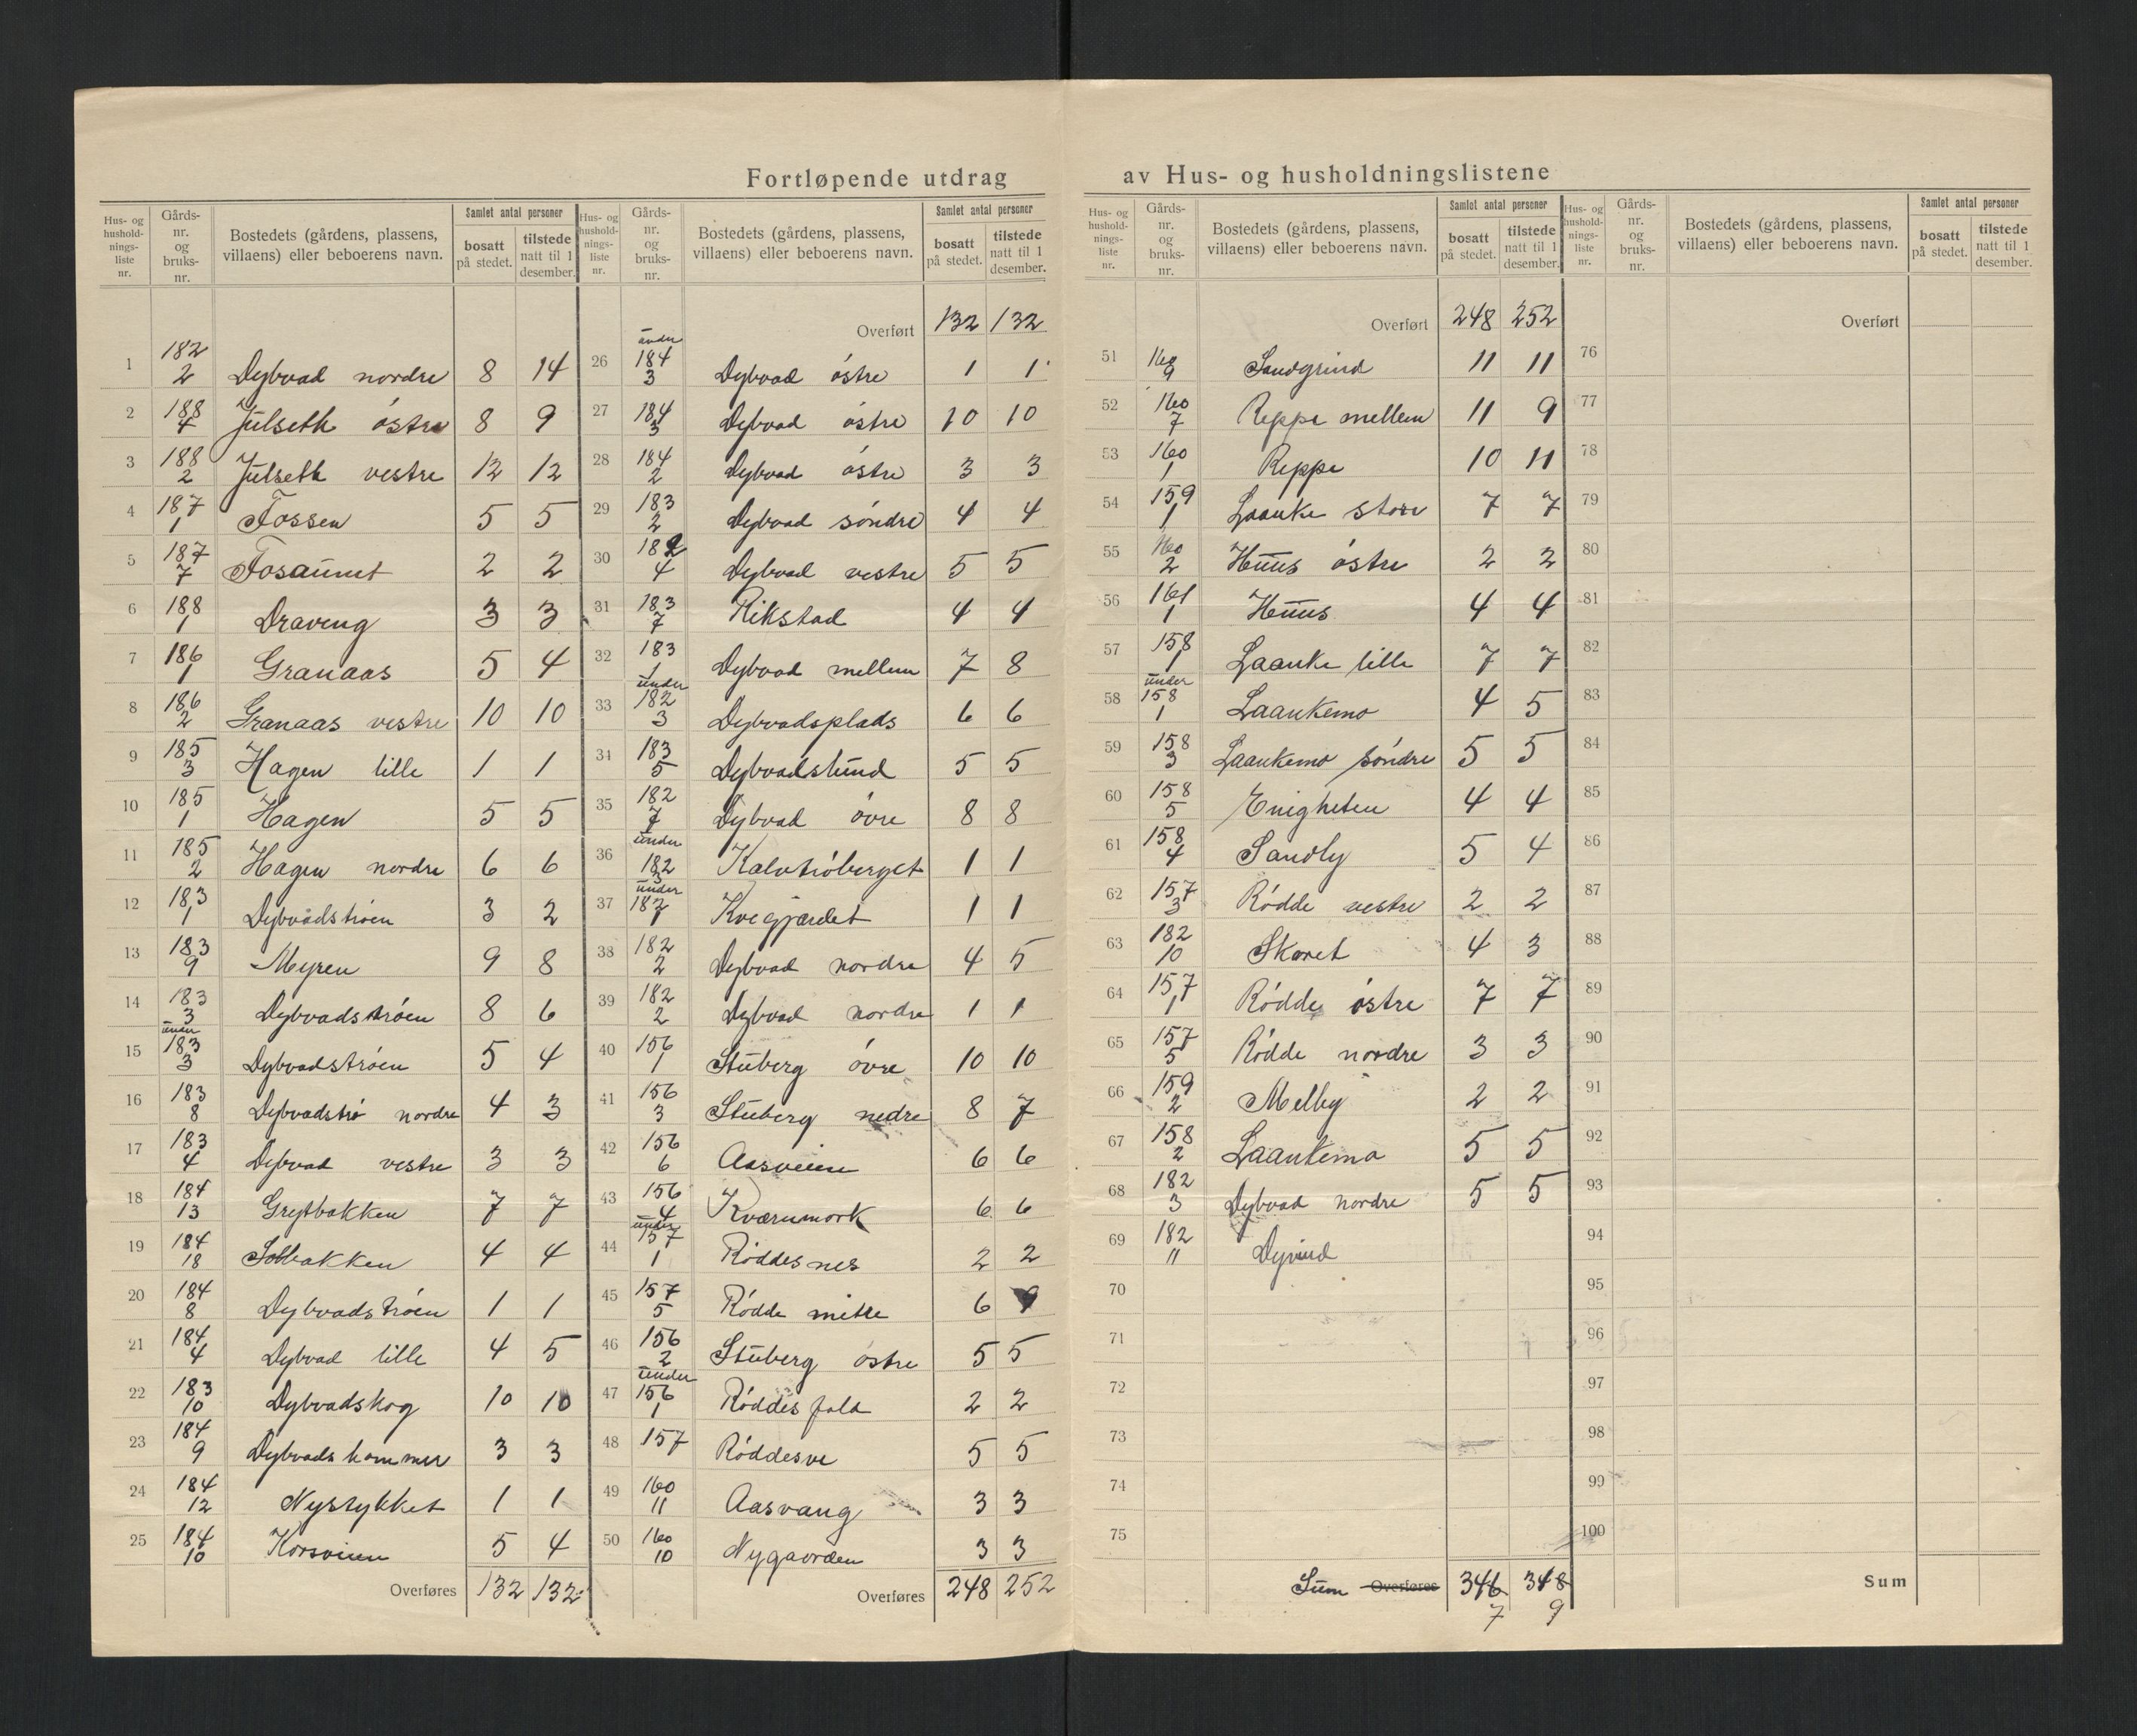 Fortløpende utdrag av Hus- og husholdningslistene
Hus- og hushold-nings-liste nr. Gårds-nr. og bruks-nr. Bostedets (gårdens, plassens, villaens) eller beboerens navn. Samlet antal personer bosatt på stedet. tilstede natt til 1 desember.
1 182/2 Dybvad nordre 8 14
2 188/4 Julseth østre 8 9
3 188/2 Julseth vestre 12 12
4 187/1 Fossen 5 5
5 187/7 Fosaunet 2 2
6 188/1 Draveng 3 3
7 186/1 Granaas 5 4
8 186/2 Granaas vestre 10 10
9 185/3 Hagen lille 1 1
10 185/1 Hagen 5 5
11 185/2 Hagen nordre 6 6
12 183/1 Dybvadstrøen 3 2
13 183/9 Myren 9 8
14 183/3 Dybvadstrøen 8 6
15 under 183/3 Dybvadstrøen 5 4
16 183/8 Dybvadstrø nordre 4 3
17 183/4 Dybvad vestre 3 3
18 184/13 Greftbakken 7 7
19 184/18 Solbakken 4 4
20 184/8 Dybvadstrøen 1 1
21 184/4 Dybvad lille 4 5
22 183/10 Dybvadskog 10 10
23 184/9 Dybvadshammer 3 3
24 184/12 Nystykket 1 1
25 184/10 Korsveien 5 4
Overføres 132 132
Hus- og hushold-nings-liste nr. Gårds-nr. og bruks-nr. Bostedets (gårdens, plassens, villaens) eller beboerens navn. Samlet antal personer bosatt på stedet. tilstede natt til 1 desember.
Overført 132 132
26 under 184/3 Dybvad østre 1 1
27 184/3 Dybvad østre 10 10
28 184/2 Dybvad østre 3 3
29 183/2 Dybvad søndre 4 4
30 182/4 Dybvad vestre 5 5
31 183/7 Rikstad 4 4
32 183/1 Dybvad mellem 7 8
33 under 182/3 Dybvadsplads 6 6
34 183/5 Dybvadslund 5 5
35 182/7 Dybvad øvre 8 8
36 under 182/3 Kalvtrøberget 1 1
37 under 182/1 Kvegjærdet 1 1
38 182/2 Dybvad nordre 4 5
39 182/2 Dybvad nordre 1 1
40 156/1 Stuberg øvre 10 10
41 156/3 Stuberg nedre 8 7
42 156/6 Aasveien 6 6
43 156/4 Kværnmork 6 6
44 under 157/1 Røddesnes 2 2
45 157/5 Rødde mitre 6
46 156/2 Stuberg østre 5 5
47 under 156/1 Røddesfald 2 2
48 157 Røddesve 5 5
49 160/11 Aasvang 3 3
50 160/10 Nygaarden 3 3
Overføres 248 252
Hus- og hushold-nings-liste nr. Gårds-nr. og bruks-nr. Bostedets (gårdens, plassens, villaens) eller beboerens navn. Samlet antal personer bosatt på stedet. tilstede natt til 1 desember.
Overført 248 252
51 160/9 Sandgrind 11 11
52 160/7 Reppe mellem 11 9
53 160/1 Reppe 10 11
54 159/1 Laanke store 7 7
55 160/2 Huus østre 2 2
56 161/1 Huus 4 4
57 158/1 Laanke lille 7 7
58 under 158/1 Laankemo 4 5
59 158/3 Laankemo søndre 5 5
60 158/5 Enigheten 4 4
61 158/4 Sandly 5 4
62 157/3 Rødde vestre 2 2
63 182/10 Skaret 4 3
64 157/1 Rødde østre 7 7
65 157/5 Rødde nordre 3 3
66 159/2 Melby 2 2
67 158/2 Laankemo 5 5
68 182/3 Dybvad nordre 5 5
69 182/11 Dyrind
70
71
72
73
74
75
Sum Overføres 346 348
7 9
Hus- og hushold-nings-liste nr. Gårds-nr. og bruks-nr. Bostedets (gårdens, plassens, villaens) eller beboerens navn. Samlet antal personer bosatt på stedet. tilstede natt til 1 desember.
Overført
76
77
78
79
80
81
82
83
84
85
86
87
88
89
90
91
92
93
94
95
96
97
98
99
100
Sum